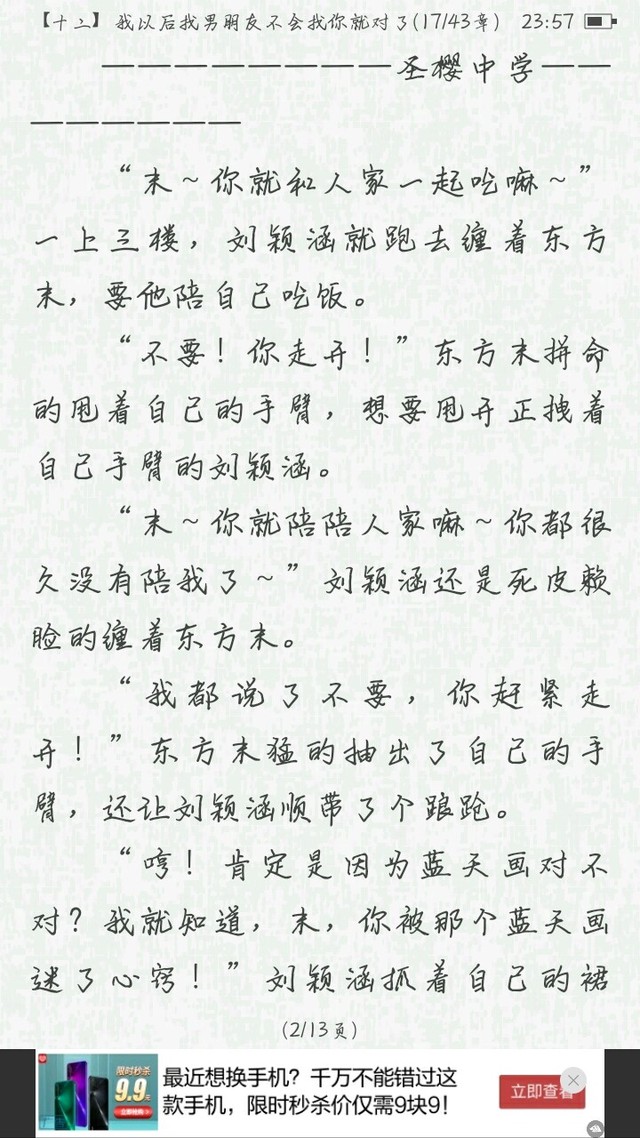 【十二】我以后找男朋友不会找你就对了(17/43章) 23:57
————————圣樱中学——
——————
“末~你就和人家一起吃嘛~”
一上三楼，刘颖涵就跑去缠着东方
末，要他陪自己吃饭。
“不要！你走开！”东方末拼命
的甩着自己的手臂，想要甩开正拽着
自己手臂的刘颖涵。
“末~你就陪陪人家嘛~你都很
久没有陪我了~”刘颖涵还是死皮赖
脸的缠着东方末。
“我都说了不要，你赶紧走
开！”东方末猛的抽出了自己的手
臂，还让刘颖涵顺带了个踉跄。
“哼！肯定是因为蓝天画对不
对？我就知道，末，你被那个蓝天画
迷了心窍！”刘颖涵抓着自己的裙
(2/13页)
限时秒杀
9.9元
立即抢购
最近想换手机？千万不能错过这
款手机，限时秒杀价仅需9块9！
立即查看